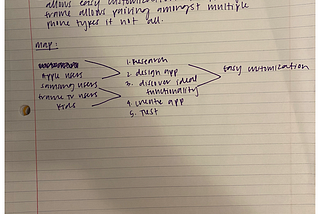 allows easy customization
frame allows pairing amongst multiple
phone types if not all.
map:
Apple users
samsung users
frame TV users
kids
1. Research
2. design app
3. discover ideal
functionality
4. create app
5. Test
easy cutomization